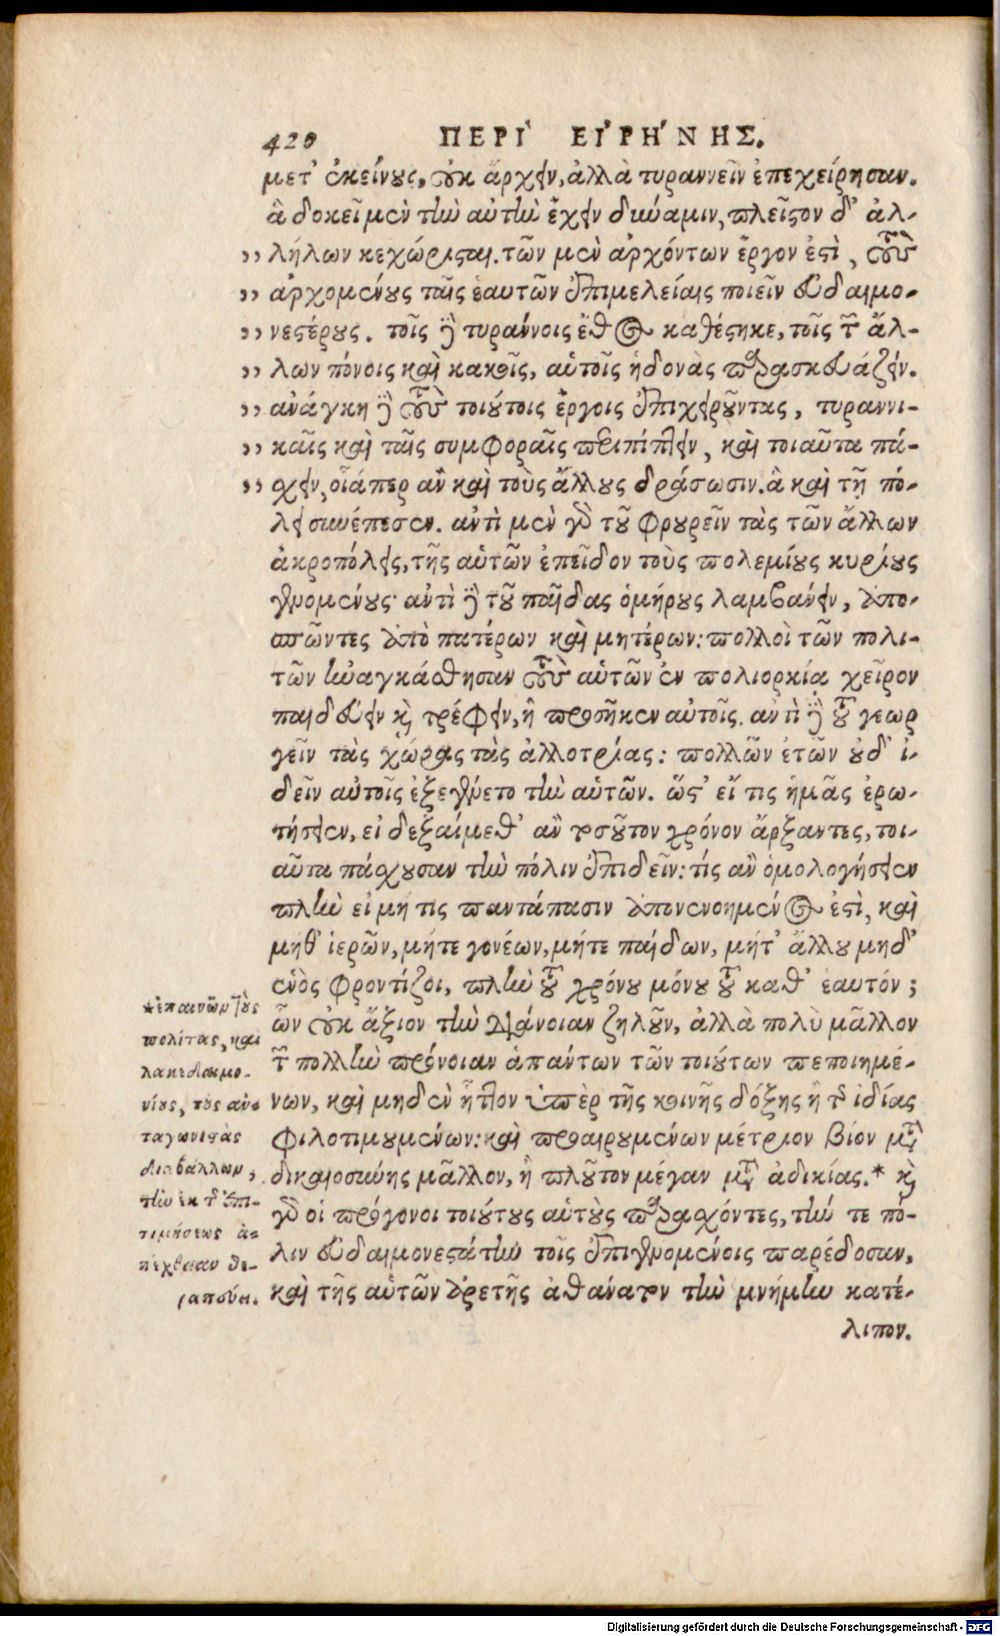 420 ΠΕΡΙ ΕΙΡΗΝΗΣ.
μετ' ἐκείνους, οὐκ ἄρχειν, ἀλλὰ τυραννεῖν ἐπεχείρησαν.
ἃ δοκεῖ μὲν τὴν αὐτὴν ἔχειν δύναμιν, πλεῖστον δ' ἀλ-
„ λήλων κεχώρισται. τῶν μὲν ἀρχόντων ἔργον ἐστὶ, τοὺς
„ ἀρχομένους ταῖς ἑαυτῶν ἐπιμελείαις ποιεῖν εὐδαιμο-
„ νεστέρους. τοῖς δὲ τυράννοις ἔθος καθέστηκε, τοῖς τῶν ἄλ-
„ λων πόνοις καὶ κακοῖς, αὑτοῖς ἡδονὰς παρασκευάζειν.
„ ἀνάγκη δὲ τοὺς τοιούτοις ἔργοις ἐπιχειροῦντας, τυραννι-
„ καῖς καὶ ταῖς συμφοραῖς περιπίπτειν, καὶ τοιαῦτα πά-
„ σχειν, οἷάπερ ἂν καὶ τοὺς ἄλλους δράσωσιν. ἃ καὶ τῇ πό-
λει συνέπεσεν. ἀντὶ μὲν γὰρ τοῦ φρουρεῖν τὰς τῶν ἄλλων
ἀκροπόλεις, τῆς αὑτῶν ἐπεῖδον τοὺς πολεμίους κυρίους
γενομένους· ἀντὶ δὲ τοῦ παῖδας ὁμήρους λαμβάνειν, ἀπο-
σπῶντες ἀπὸ πατέρων καὶ μητέρων: πολλοὶ τῶν πολι-
τῶν ἠναγκάσθησαν τοὺς αὑτῶν ἐν πολιορκίᾳ χεῖρον
παιδεύειν καὶ τρέφειν, ἢ προσῆκεν αὐτοῖς. ἀντὶ δὲ τοῦ γεωρ
γεῖν τὰς χώρας τὰς ἀλλοτρίας: πολλῶν ἐτῶν οὐδ' ἰ-
δεῖν αὐτοῖς ἐξεγένετο τὴν αὑτῶν. ὥστ' εἴ τις ἡμᾶς ἐρω-
τήσειεν, εἰ δεξαίμεθ' ἂν τοσοῦτον χρόνον ἄρξαντες, τοι-
αῦτα πάσχουσαν τὴν πόλιν ἐπιδεῖν: τίς ἂν ὁμολογήσειεν
πλὴν εἰ μή τις παντάπασιν ἀπονενοημένος ἐστὶ, καὶ
μήθ' ἱερῶν, μήτε γονέων, μήτε παίδων, μήτ' ἄλλου μηδ'
ἑνὸς φροντίζοι, πλὴν τοῦ χρόνου μόνου τοῦ καθ' ἑαυτόν;
ὧν οὐκ ἄξιον τὴν διάνοιαν ζηλοῦν, ἀλλὰ πολὺ μᾶλλον
τῶν πολλὴν πρόνοιαν ἁπάντων τῶν τοιούτων πεποιημέ-
νων, καὶ μηδὲν ἧττον ὑπὲρ τῆς κοινῆς δόξης ἢ τῆς ἰδίας
φιλοτιμουμένων: καὶ προαιρουμένων μέτριον βίον μετὰ
δικαιοσύνης μᾶλλον, ἢ πλοῦτον μέγαν μετὰ ἀδικίας.* καὶ
γὰρ οἱ πρόγονοι τοιούτους αὑτοὺς παρασχόντες, τήν τε πό-
λιν εὐδαιμονεστάτην τοῖς ἐπιγενομένοις παρέδοσαν,
καὶ τῆς αὑτῶν ἀρετῆς ἀθάνατον τὴν μνήμην κατέ-
λιπον.
*ἐπαινῶν τοὺς
πολίτας, καὶ
λακεδαιμο-
νίους, τοὺς ἀν-
ταγωνιστὰς
διαβάλλων,
τὴν ἐκ τῆς ἐπι-
τιμήσεως ἀ-
πέχθειαν θε-
ραπεύει.
Digitalisierung gefördert durch die Deutsche Forschungsgemeinschaft - DFG